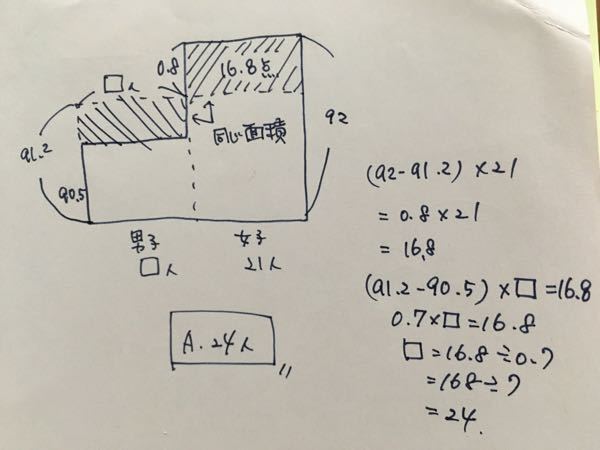 0.8
16.8点
□人
同じ面積
91.2
92
90.5
男子
女子
□人
21人
A.24人
(92-91.2)×21
=0.8×21
=16.8
(91.2-90.5)×□=16.8
0.7×□=16.8
□=16.8÷0.7
=168÷7
=24.